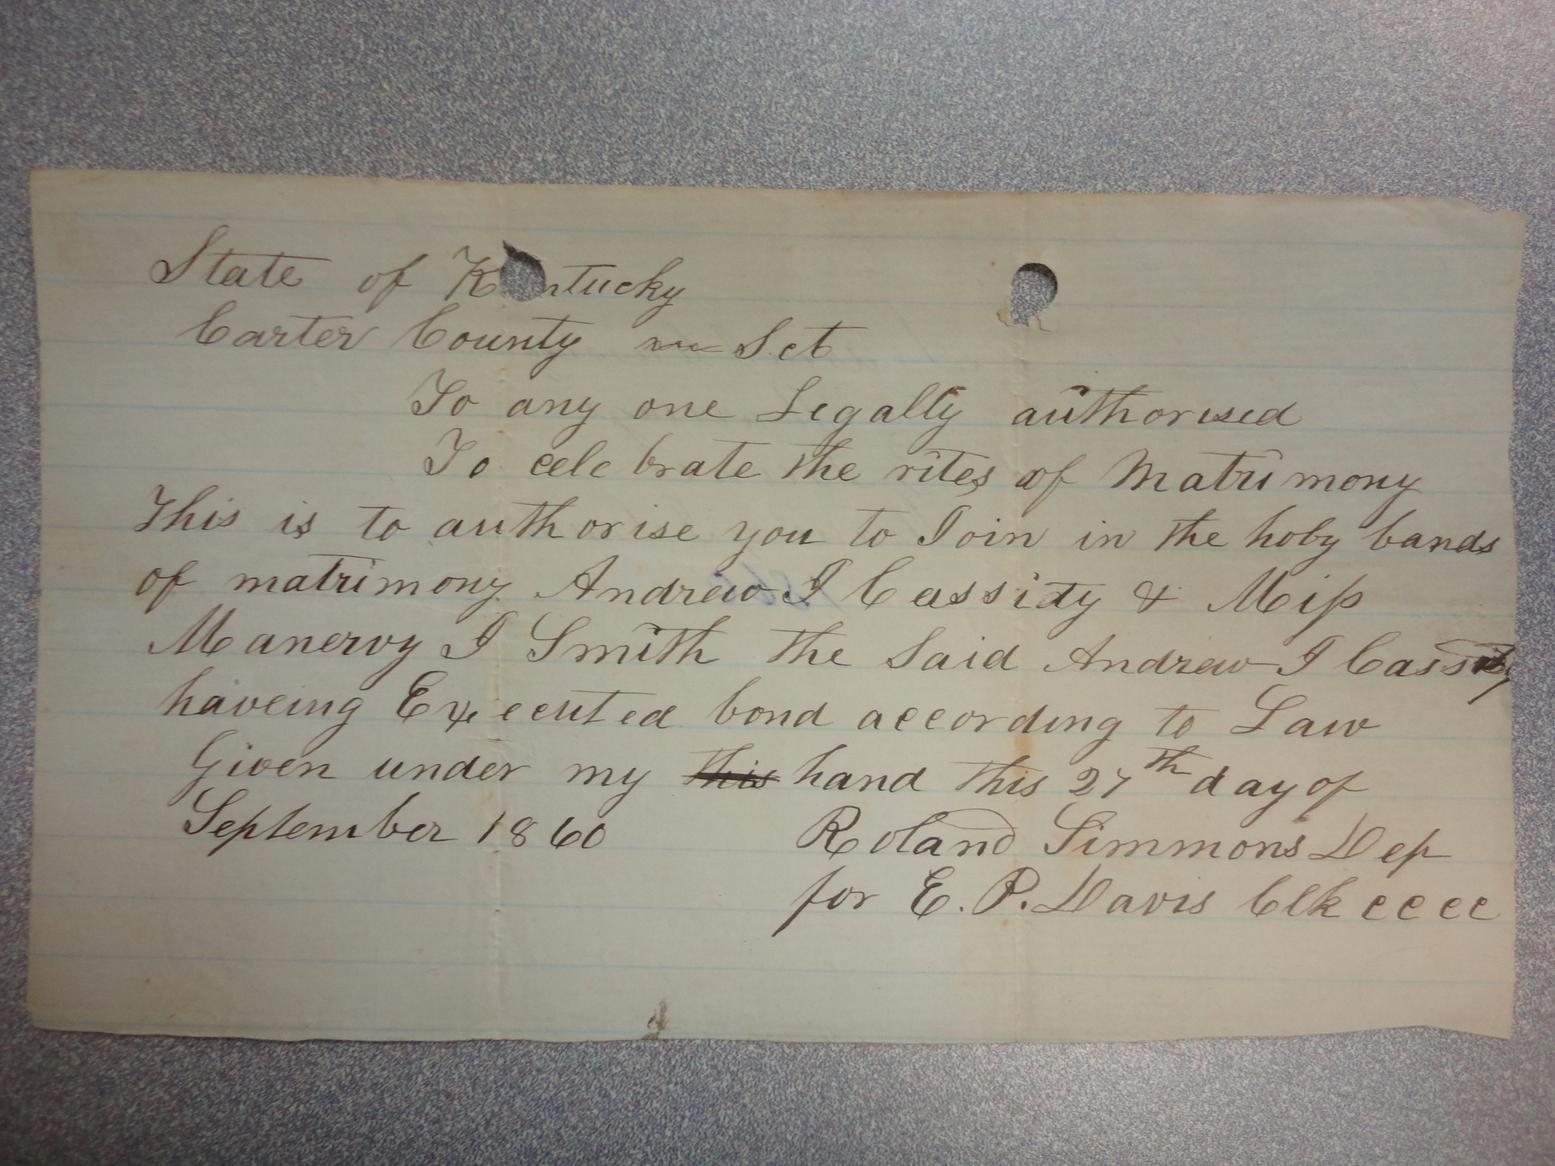 State of Kntucky
Carter County Sct
To any one Legally authorised
To celebrate the rites of Matrimony
This is to authorise you to Join in the holy bands
of matrimony Andrew J Cassidy & Miss
Manervy J Smith the Said Andrew J Cassity
haveing Executed bond according to Law
Given under my this hand this 27th day of
September 1860 Roland Simmons Dep
for E. P. Davis Clk CCCC